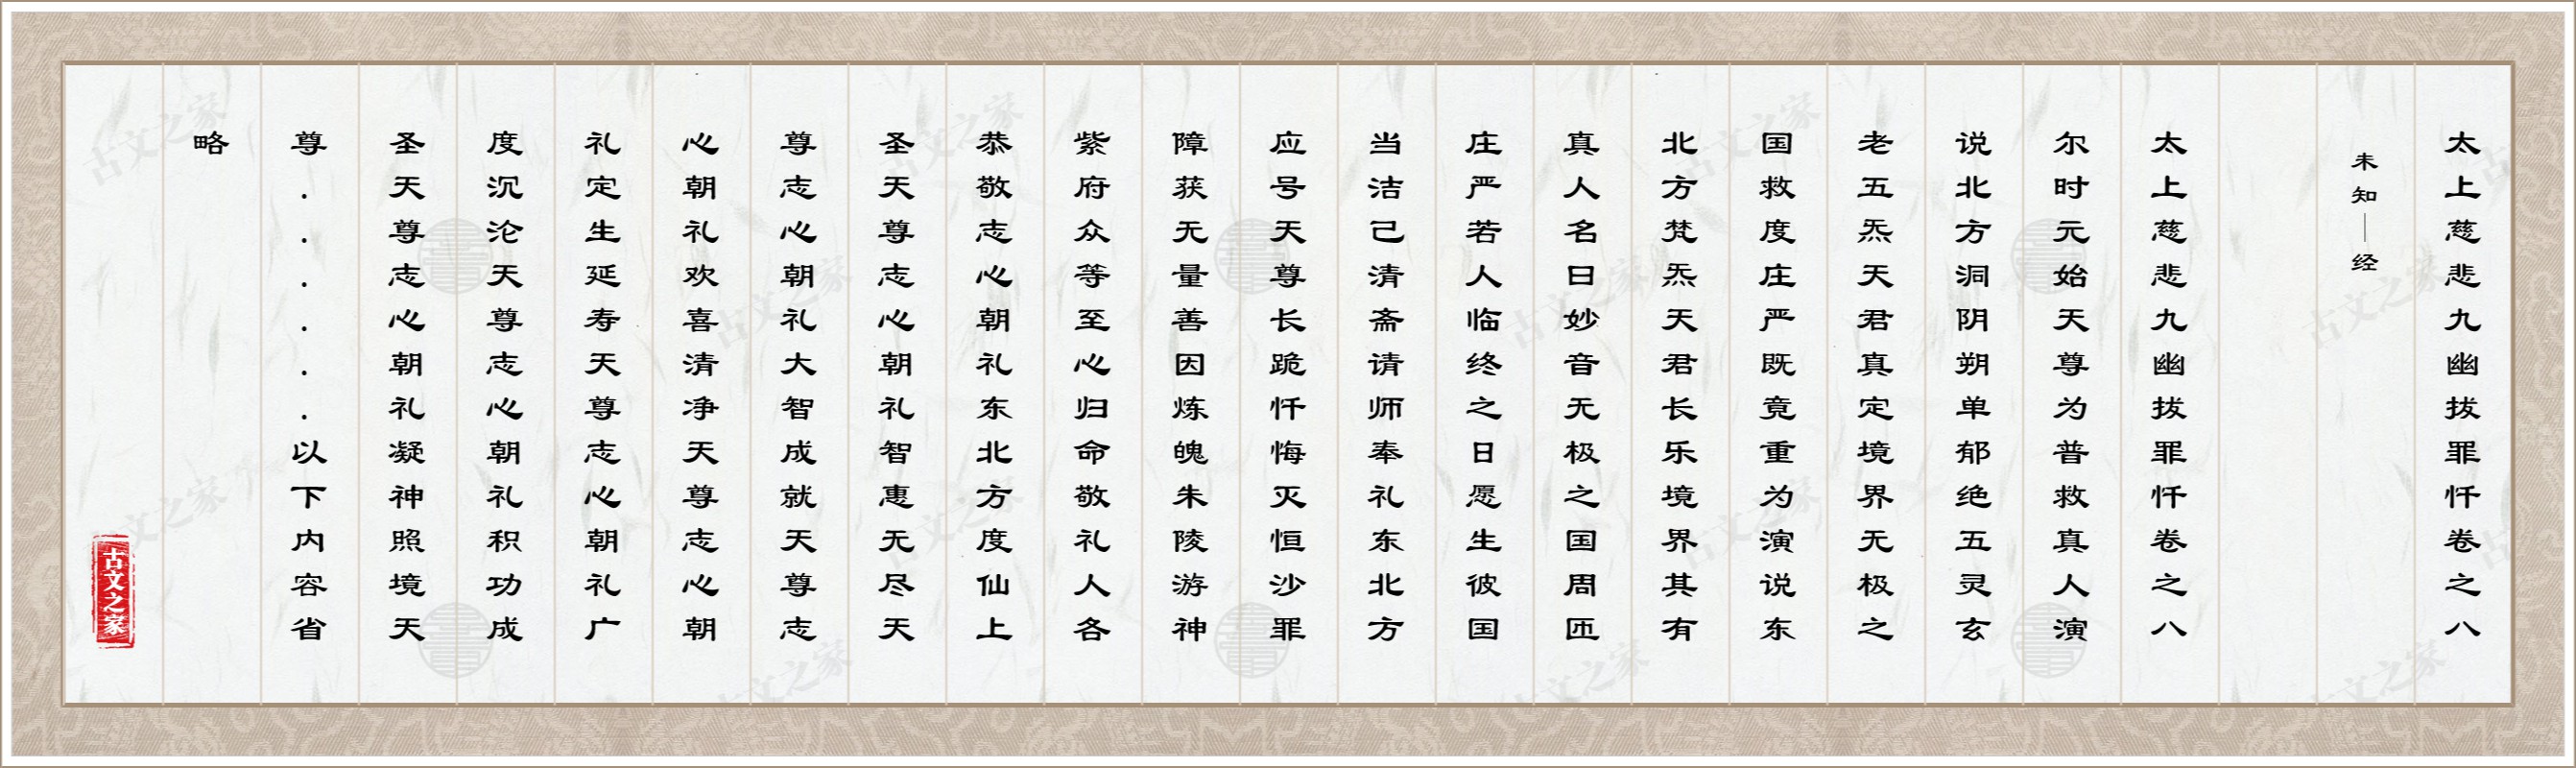 太上慈悲九幽拔罪忏卷之八
未知｜经
太上慈悲九幽拔罪忏卷之八
尔时元始天尊为普救真人演
说北方洞阴朔单郁绝五灵玄
老五炁天君真定境界无极之
国救度庄严既竟重为演说东
北方梵炁天君长乐境界其有
真人名曰妙音无极之国周匝
庄严若人临终之日愿生彼国
当洁己清斋请师奉礼东北方
应号天尊长跪忏悔灭恒沙罪
障获无量善因炼魄朱陵游神
紫府众等至心归命敬礼人各
恭敬志心朝礼东北方度仙上
圣天尊志心朝礼智惠无尽天
尊志心朝礼大智成就天尊志
心朝礼欢喜清净天尊志心朝
礼定生延寿天尊志心朝礼广
度沉沦天尊志心朝礼积功成
圣天尊志心朝礼凝神照境天
尊......以下内容省
略
古文之家